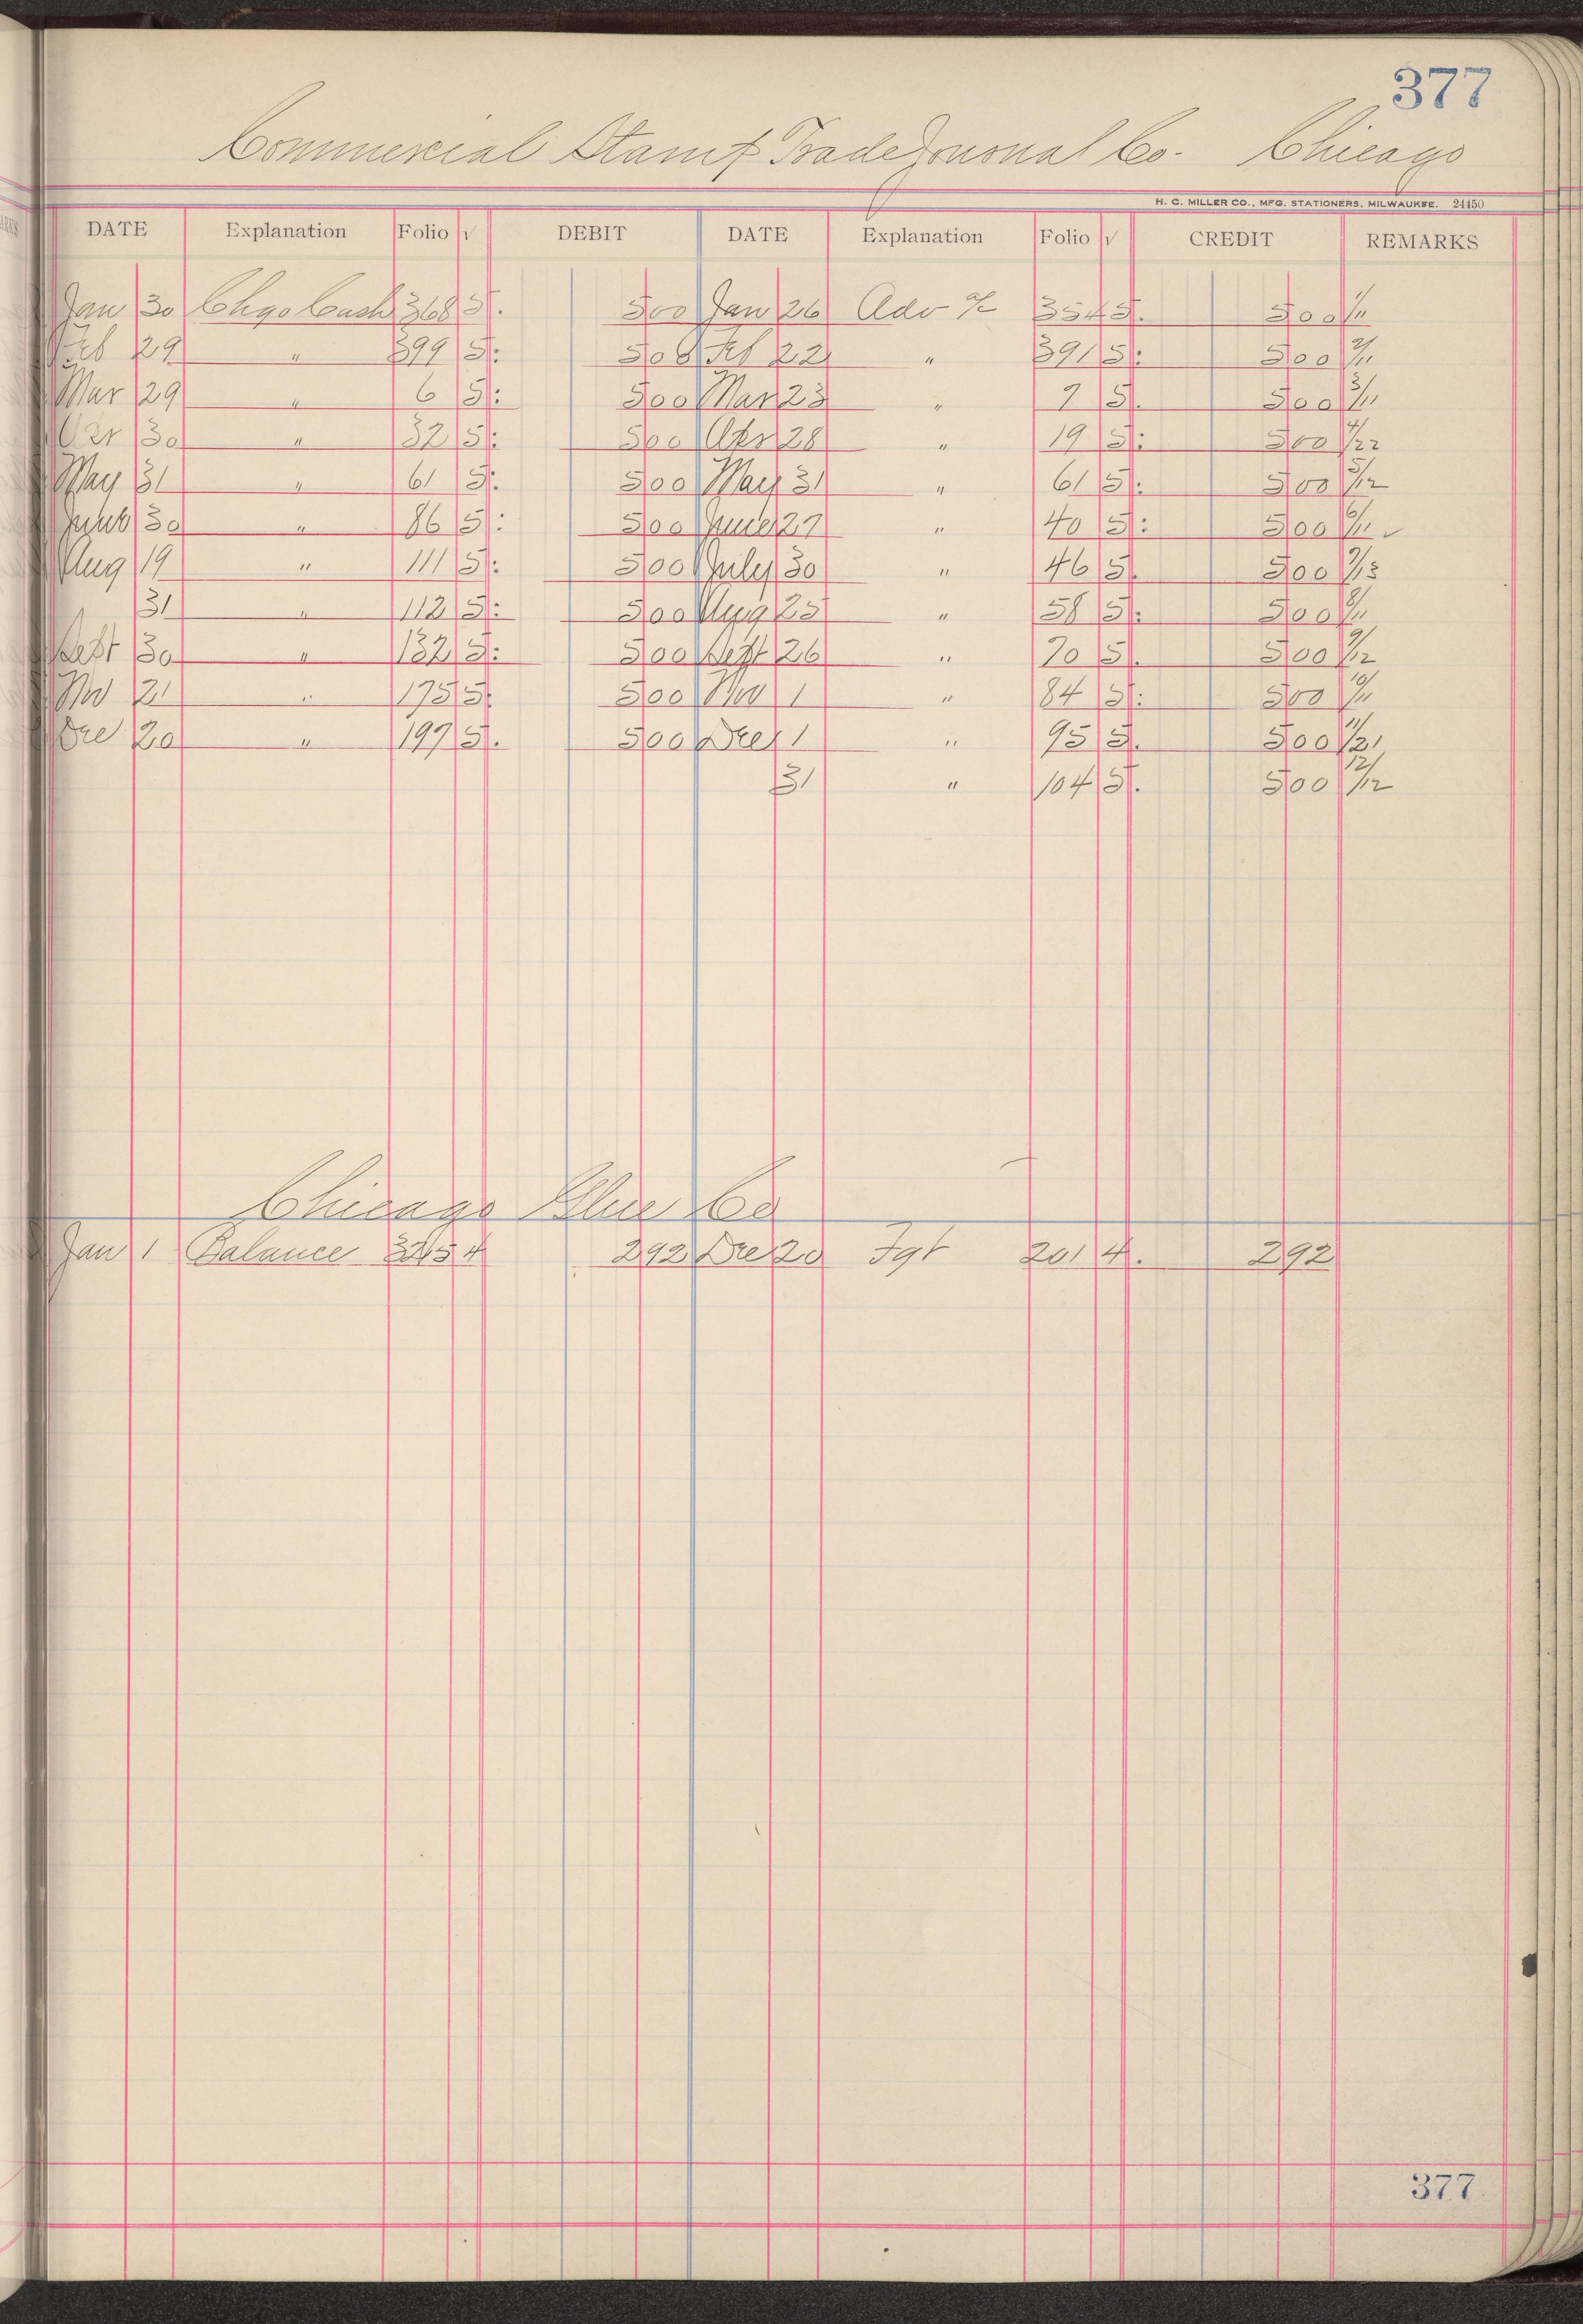 377
Commercial Stamp Trade Journal Co. Chicago
H. C. MILLER CO., MFG. STATIONERS, MILWAUKEE. 24450
DATE Explanation Folio √ DEBIT DATE Explanation Folio √ CREDIT REMARKS
Jan 30 Chgo Cash 368 5. 500 Jan 26 Adv % 354 5. 500 1/11
Feb 29 " 399 5. 500 Feb 22 " 391 5. 500 2/11
Mar 29 " 6 5. 500 Mar 23 " 7 5. 500 3/11
Apr 30 " 32 5. 500 Apr 28 " 19 5. 500 4/22
May 31 " 61 5. 500 May 31 " 61 5. 500 5/12
June 30 " 86 5. 500 June 27 " 40 5. 500 6/11
Aug 19 " 111 5. 500 July 30 " 46 5. 500 7/13
31 " 112 5. 500 Aug 25 " 58 5. 500 8/11
Sept 30 " 132 5. 500 Sept 26 " 70 5. 500 9/12
Nov 21 " 175 5. 500 Nov 1 " 84 5. 500 10/11
Dec 20 " 197 5. 500 Dec 1 " 95 5. 500 11/21
31 " 104 5. 500 12/12
Chicago Glue Co
Jan 1 Balance 4 292 Dec 20 Fgt 201 4. 292
377